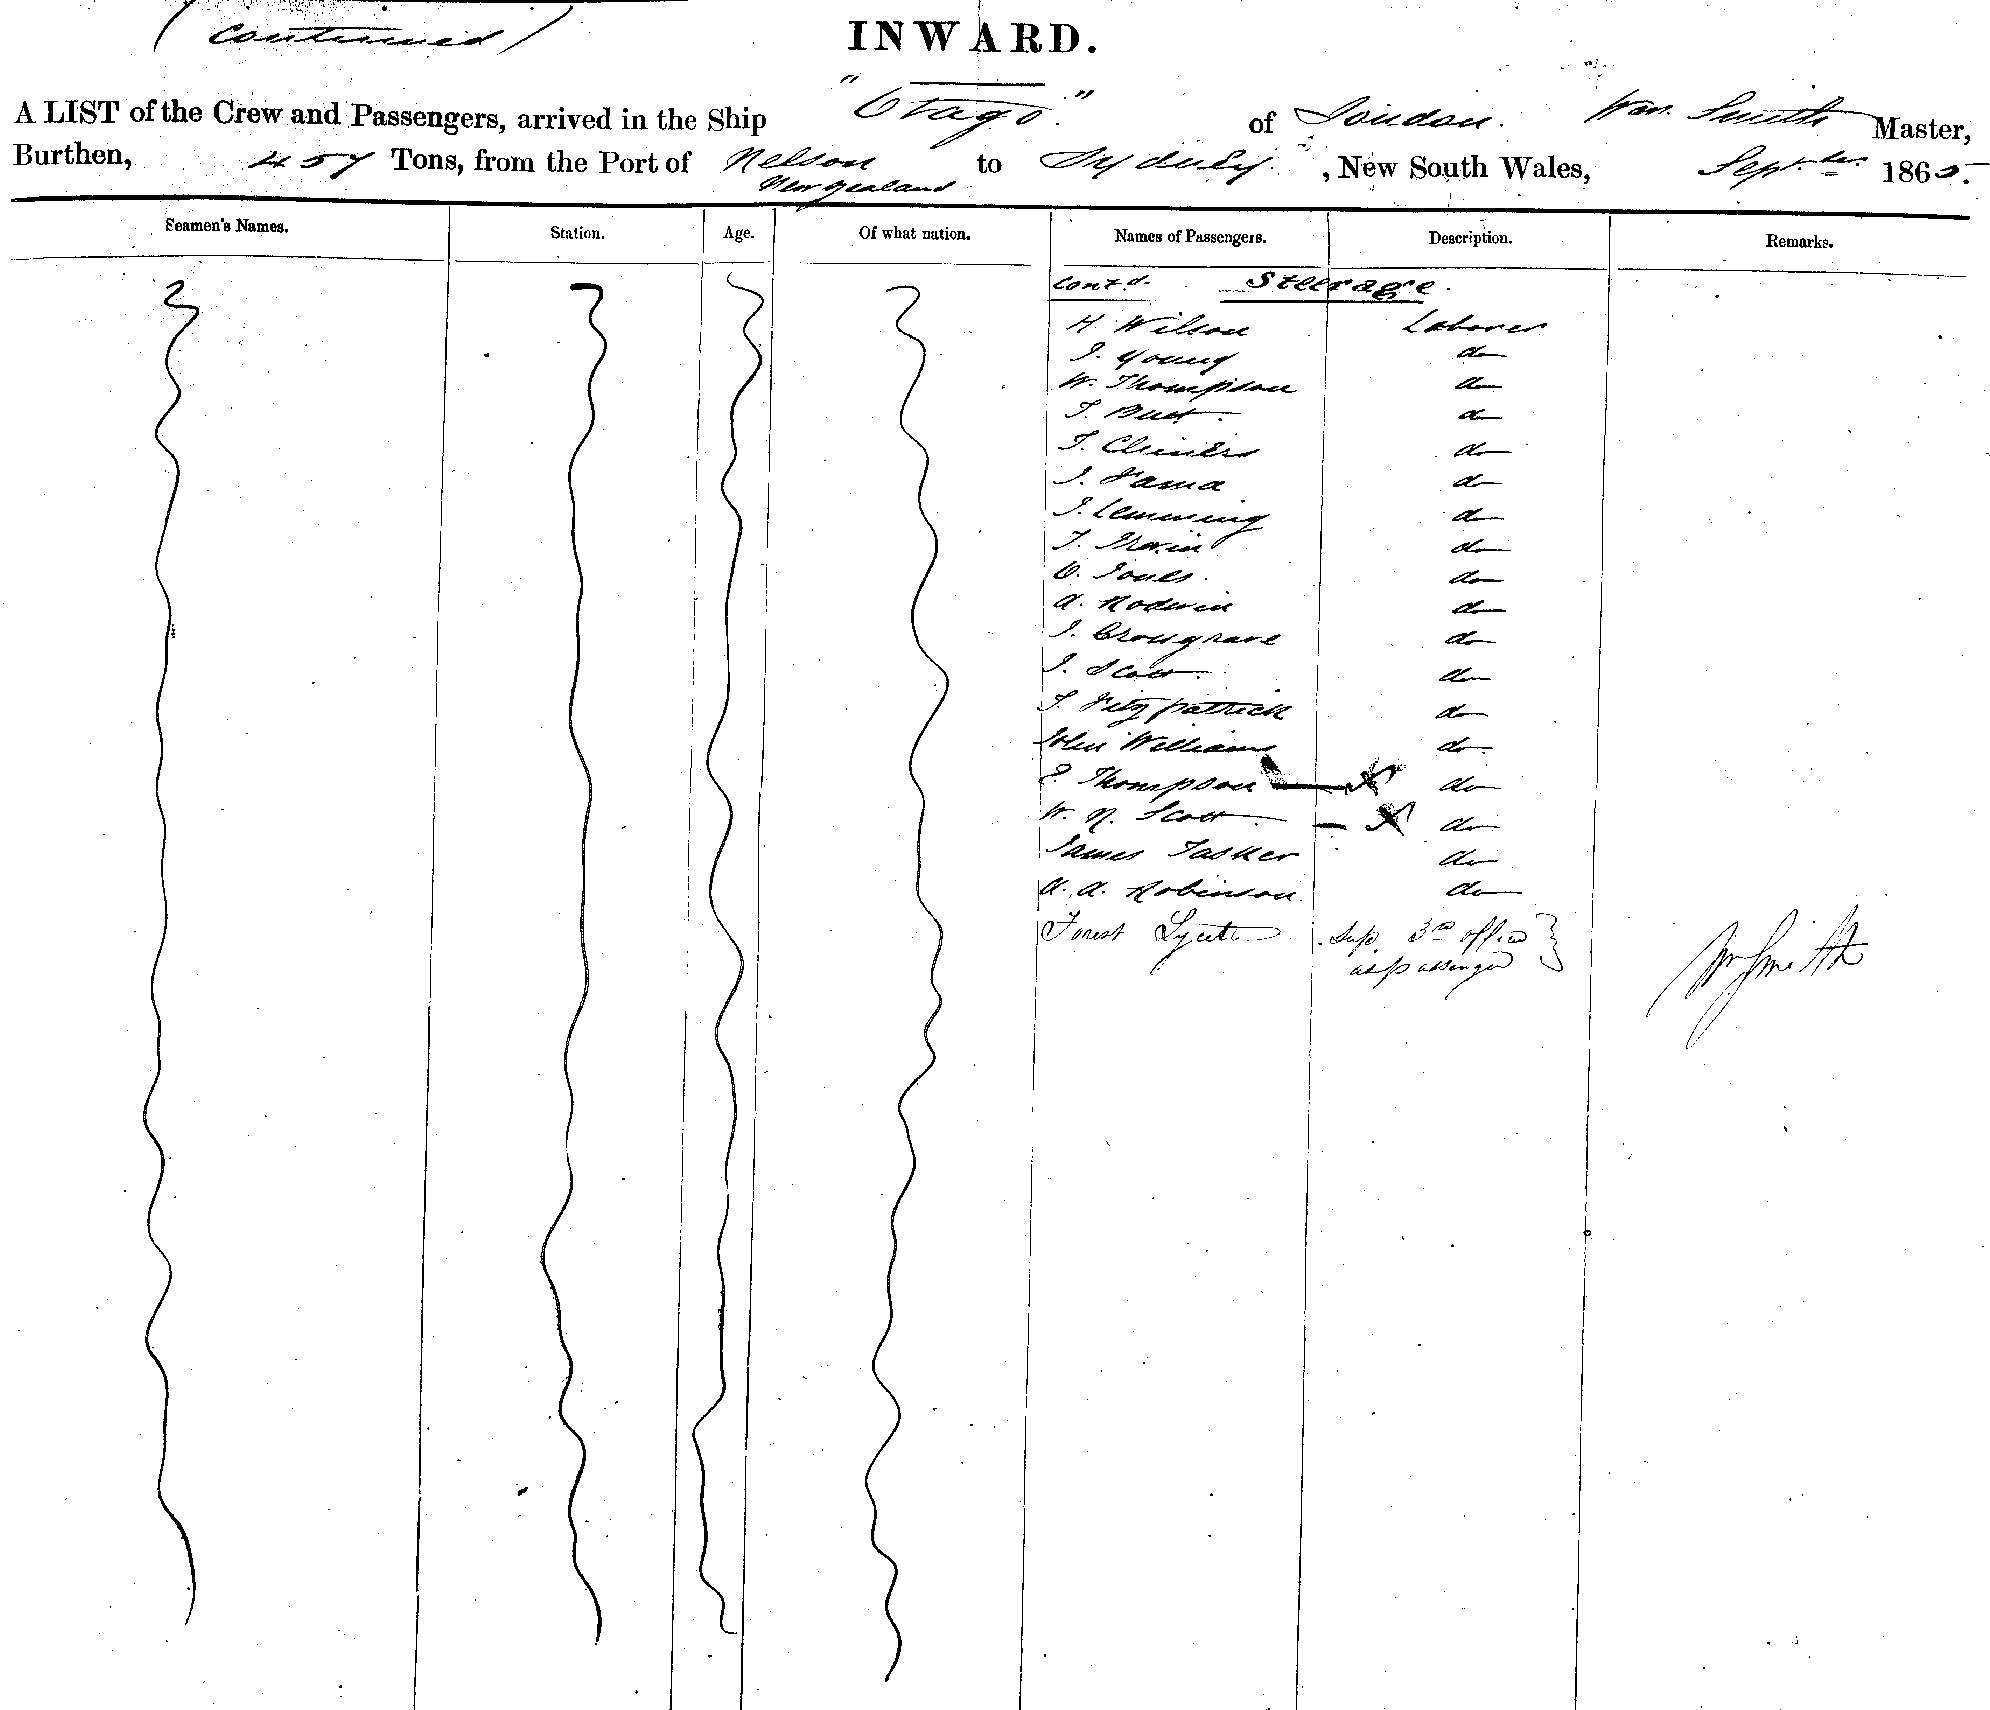 (continued)
INWARD.
A LIST of the Crew and Passengers, arrived in the Ship "Otago" of London. Wm. Smith Master,
Burthen, 457 Tons, from the Port of Nelson New Zealand to Sydney, New South Wales, Septbr. 1865.
Seamen's Names. Station. Age. Of what nation. Names of Passengers. Description. Remarks.
Contd. Steerage.
H. Wilson Laborer
J. Young do
W. Thompson do
T. do
T. do
J. do
J. Lemming do
T. Irwin do
O. Jones. do
A. do
J. do
J. Scott. do
T. Fitzpatrick do
John Williams do
E. Thompson — X do
W. N. Scott. — X do
James Tasker do
A. A. Robinson. do
Forest Sup. 3rd officer
as passenger
Wm Smith